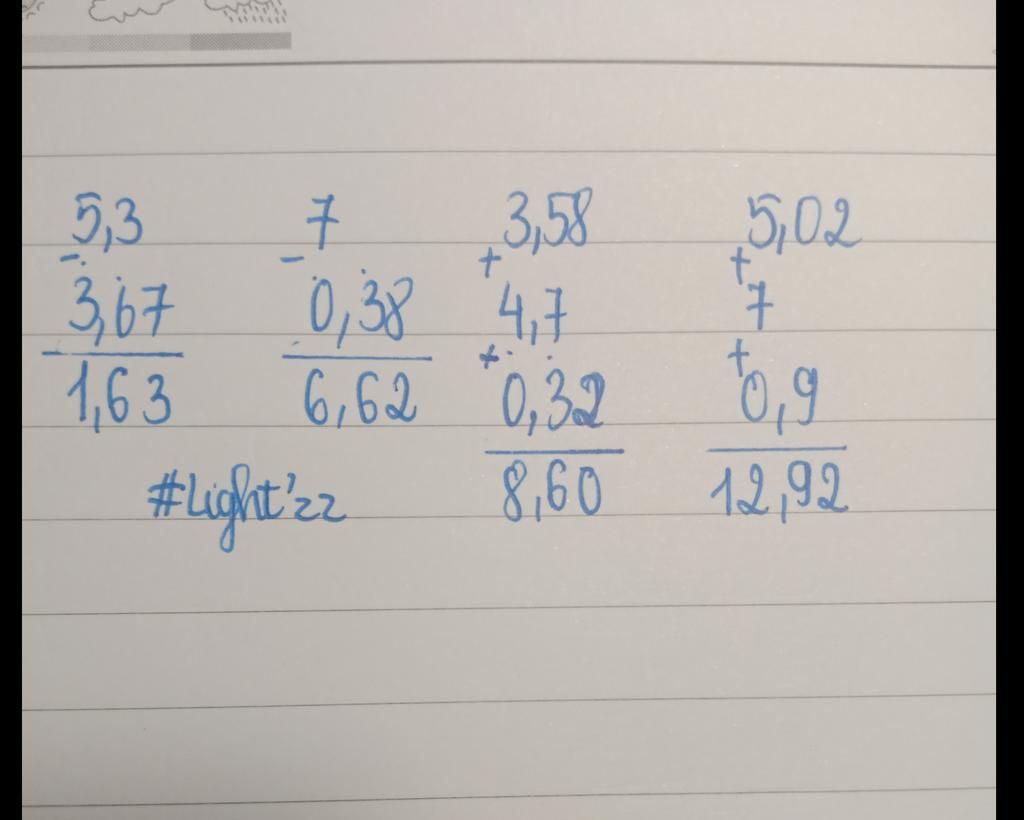 5,3
-
3,67
1,63
7
-
0,38
6,62
3,58
+
4,7
+
0,32
8,60
5,02
+
7
+
0,9
12,92
#Light'zz